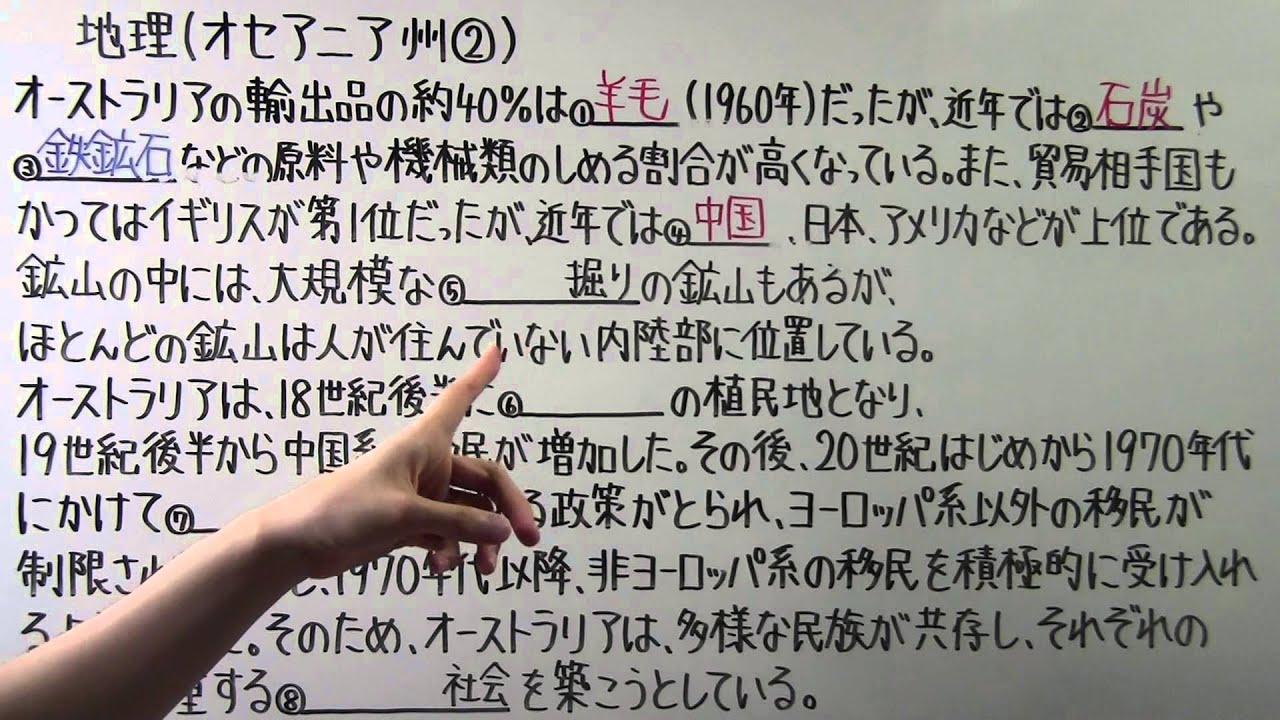 地理(オセアニア州②)
オーストラリアの輸出品の約40%は①羊毛(1960年)だったが、近年では②石炭や
③鉄鉱石などの原料や機械類のしめる割合が高くなっている。また、貿易相手国も
かつてはイギリスが第1位だったが、近年では④中国、日本、アメリカなどが上位である。
鉱山の中には、大規模な⑤____掘りの鉱山もあるが、
ほとんどの鉱山は人が住んでいない内陸部に位置している。
オーストラリアは、18世紀後半に⑥____の植民地となり、
19世紀後半から中国系 民が増加した。その後、20世紀はじめから1970年代
にかけて⑦____ る政策がとられ、ヨーロッパ系以外の移民が
制限さ 1970年代以降、非ヨーロッパ系の移民を積極的に受け入れ
るよ た。そのため、オーストラリアは、多様な民族が共存し、それぞれの
する⑧____社会を築こうとしている。